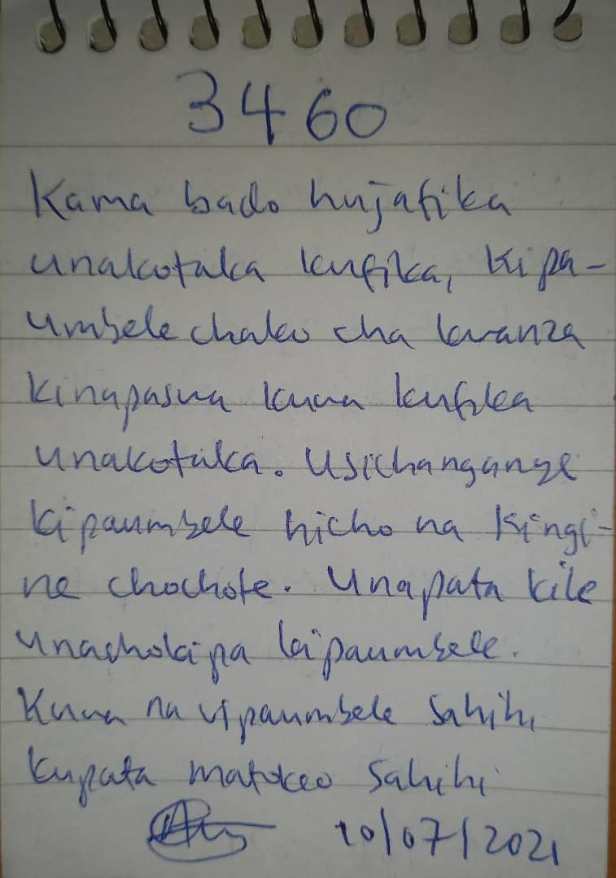 3460
Kama bado hujafika
unakotaka kufika, kipa-
umbele chako cha kwanza
kinapaswa kuwa kufika
unakotaka. Usichanganye
kipaumbele hicho na kingi-
ne chochote. Unapata kile
unachokipa kipaumbele.
Kuwa na vipaumbele sahihi
kupata matokeo sahihi
10/07/2021